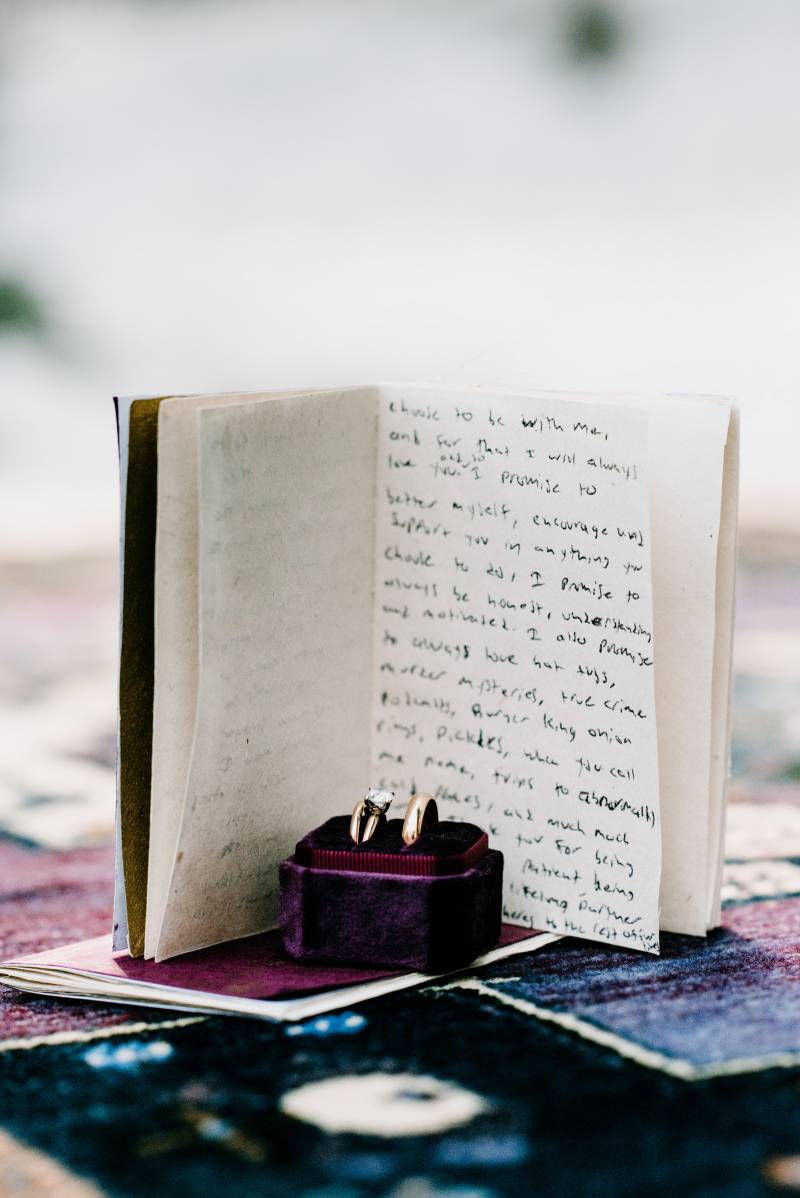 choose to be with me,
and for that I will always
and so
love you. I promise to
better myself, encourage and
support you in anything you
choose to do, I promise to
always be honest, understanding
and motivated. I also promise
to always love hot tubs,
murder mysteries, true crime
Podcasts, Burger King onion
rings, Pickles, when you call
me meme, trips to abnormally
cold places, and much much
you for being
Patient being
lifelong partner
heres to the rest of our